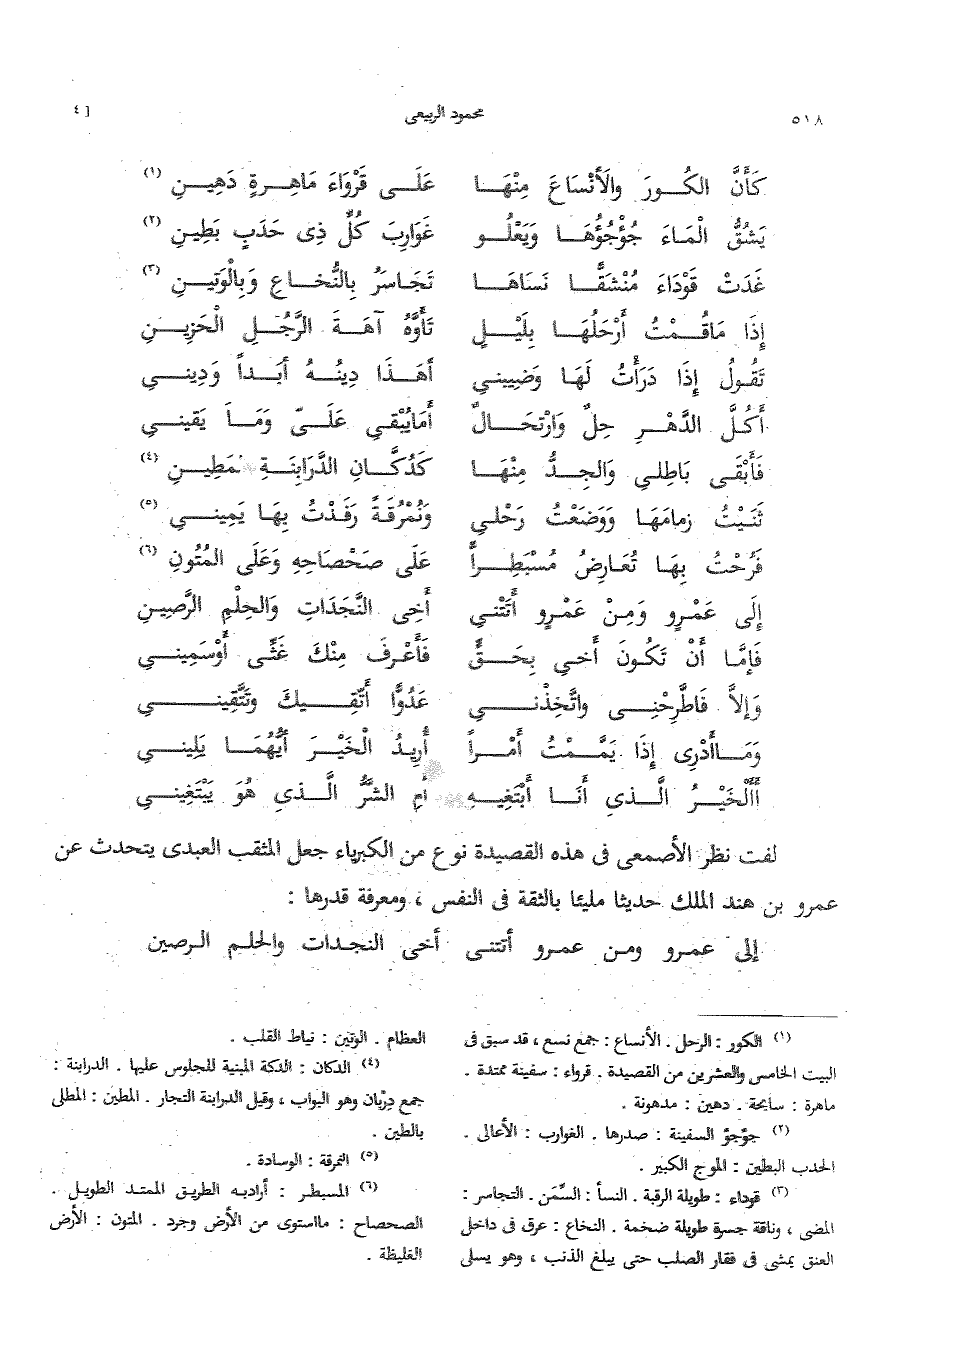 ٥١٨ محمود الربيعى [ ٤
كَأَنَّ الكُورَ والَأنْسَاعَ مِنْهَا عَلَى قَرْوَاءَ مَاهِرةٍ دَهِينِ (١)
يَشقُّ الْمَاءَ جُؤْجُؤُهَا وَيَعْلُو غَوَارِبَ كُلِّ ذِى حَدَبٍ بَطِينِ (٢)
غَدَتْ قَوْدَاءَ مُنْشَقًّا نَسَاهَا تَجَاسَرُ بِالنُّخَاعِ وَبِالْوَتِينِ (٣)
إِذَا مَاقُمْتُ أَرْحَلُهَا بِلَيْلٍ تَأَوَّهُ آهَةَ الرَّجُلِ الْحَزِينِ
تَقُولُ إِذَا دَرَأْتُ لَهَا وَضِيينى أَهَذَا دِينُهُ أَبَداً وَدِينى
أَكُلَّ الدَّهْرِ حِلٌ وَارْتَحَالٌ أَمَايُبْقى عَلَىّ وَمَا يَقينى
فَأَبْقَى بَاطِلى وَالجِدُّ مِنْهَا كَدُكَّانِ الدَّرَابِنَةِ لمَطِينِ (٤)
ثَنَيْتُ زِمامَهَا وَوَضَعْتُ رَحْلى وَنُمْرُقَةً رَفَدْتُ بِهَا يَمِينى (٥)
فَرُحْتُ بِهَا تُعَارِضُ مُسْبَطِراًّ عَلَى صَحْصَاحِهِ وَعَلَى المُتُونِ (٦)
إِلَى عَمْرٍو وَمِنْ عَمْرٍو أَتَتْنى أَخِى النَّجَدَاتِ وَالحِلْمِ الرَّصِينِ
فَإِمَّا أَنْ تَكُونَ أَخى بِحَقٍّ فَأَعْرِفَ مِنْكَ غَثِّى أَوْسَمِينى
وَإِلاَّ فَاطَّرِحْنِى واتَّخِذْنى عَدُوًّا أَتَّقِيكَ وتَتَّقِينى
وَمَاأَدْرِى إِذَا يَمَّمْتُ أَمْراً أُرِيدُ الْخَيْرَ أَيُّهُمَا يَلِينى
أَالْخَيْرُ الَّذِى أَنَا أَبْتَغِيهِ أَمِ الشَّرُّ الَّذِى هُوَ يَبْتَغِينى
لفت نظر الأصمعى فى هذه القصيدة نوع من الكبرياء جعل المثقب العبدى يتحدث عن
عمرو بن هند الملك حديثا مليئا بالثقة فى النفس ، ومعرفة قدرها :
إلى عمرو ومن عمرو أتتنى أخى النجدات والحلم الرصين
(١) الكور : الرحل . الأنساع : جمع نسع ، قد سبق فى
البيت الخامس والعشرين من القصيدة . قرواء : سفينة ممتدة .
ماهرة : سابحة . دهين : مدهونة .
(٢) جؤجؤ السفينة : صدرها . الغوارب : الأعالى .
الحدب البطين : الموج الكبير .
(٣) قوداء : طويلة الرقبة . النسأ : السِّمَن . التجاسر :
المضى ، وناقة جسرة طويلة ضخمة . النخاع : عرق فى داخل
العنق يمشى فى فقار الصلب حتى يبلغ الذنب ، وهو يسلى
العظام . الوتين : نياط القلب .
(٤) الدكان : الدكة المبنية للجلوس عليها . الدرابنة :
جمع دِرْبان وهو البواب ، وقيل الدرابنة التجار . المطين : المطلى
بالطين .
(٥) النمرقة : الوسادة .
(٦) المسبطر : أرادبه الطريق الممتد الطويل .
الصحصاح : مااستوى من الأرض وجرد . المتون : الأرض
الغليظة .